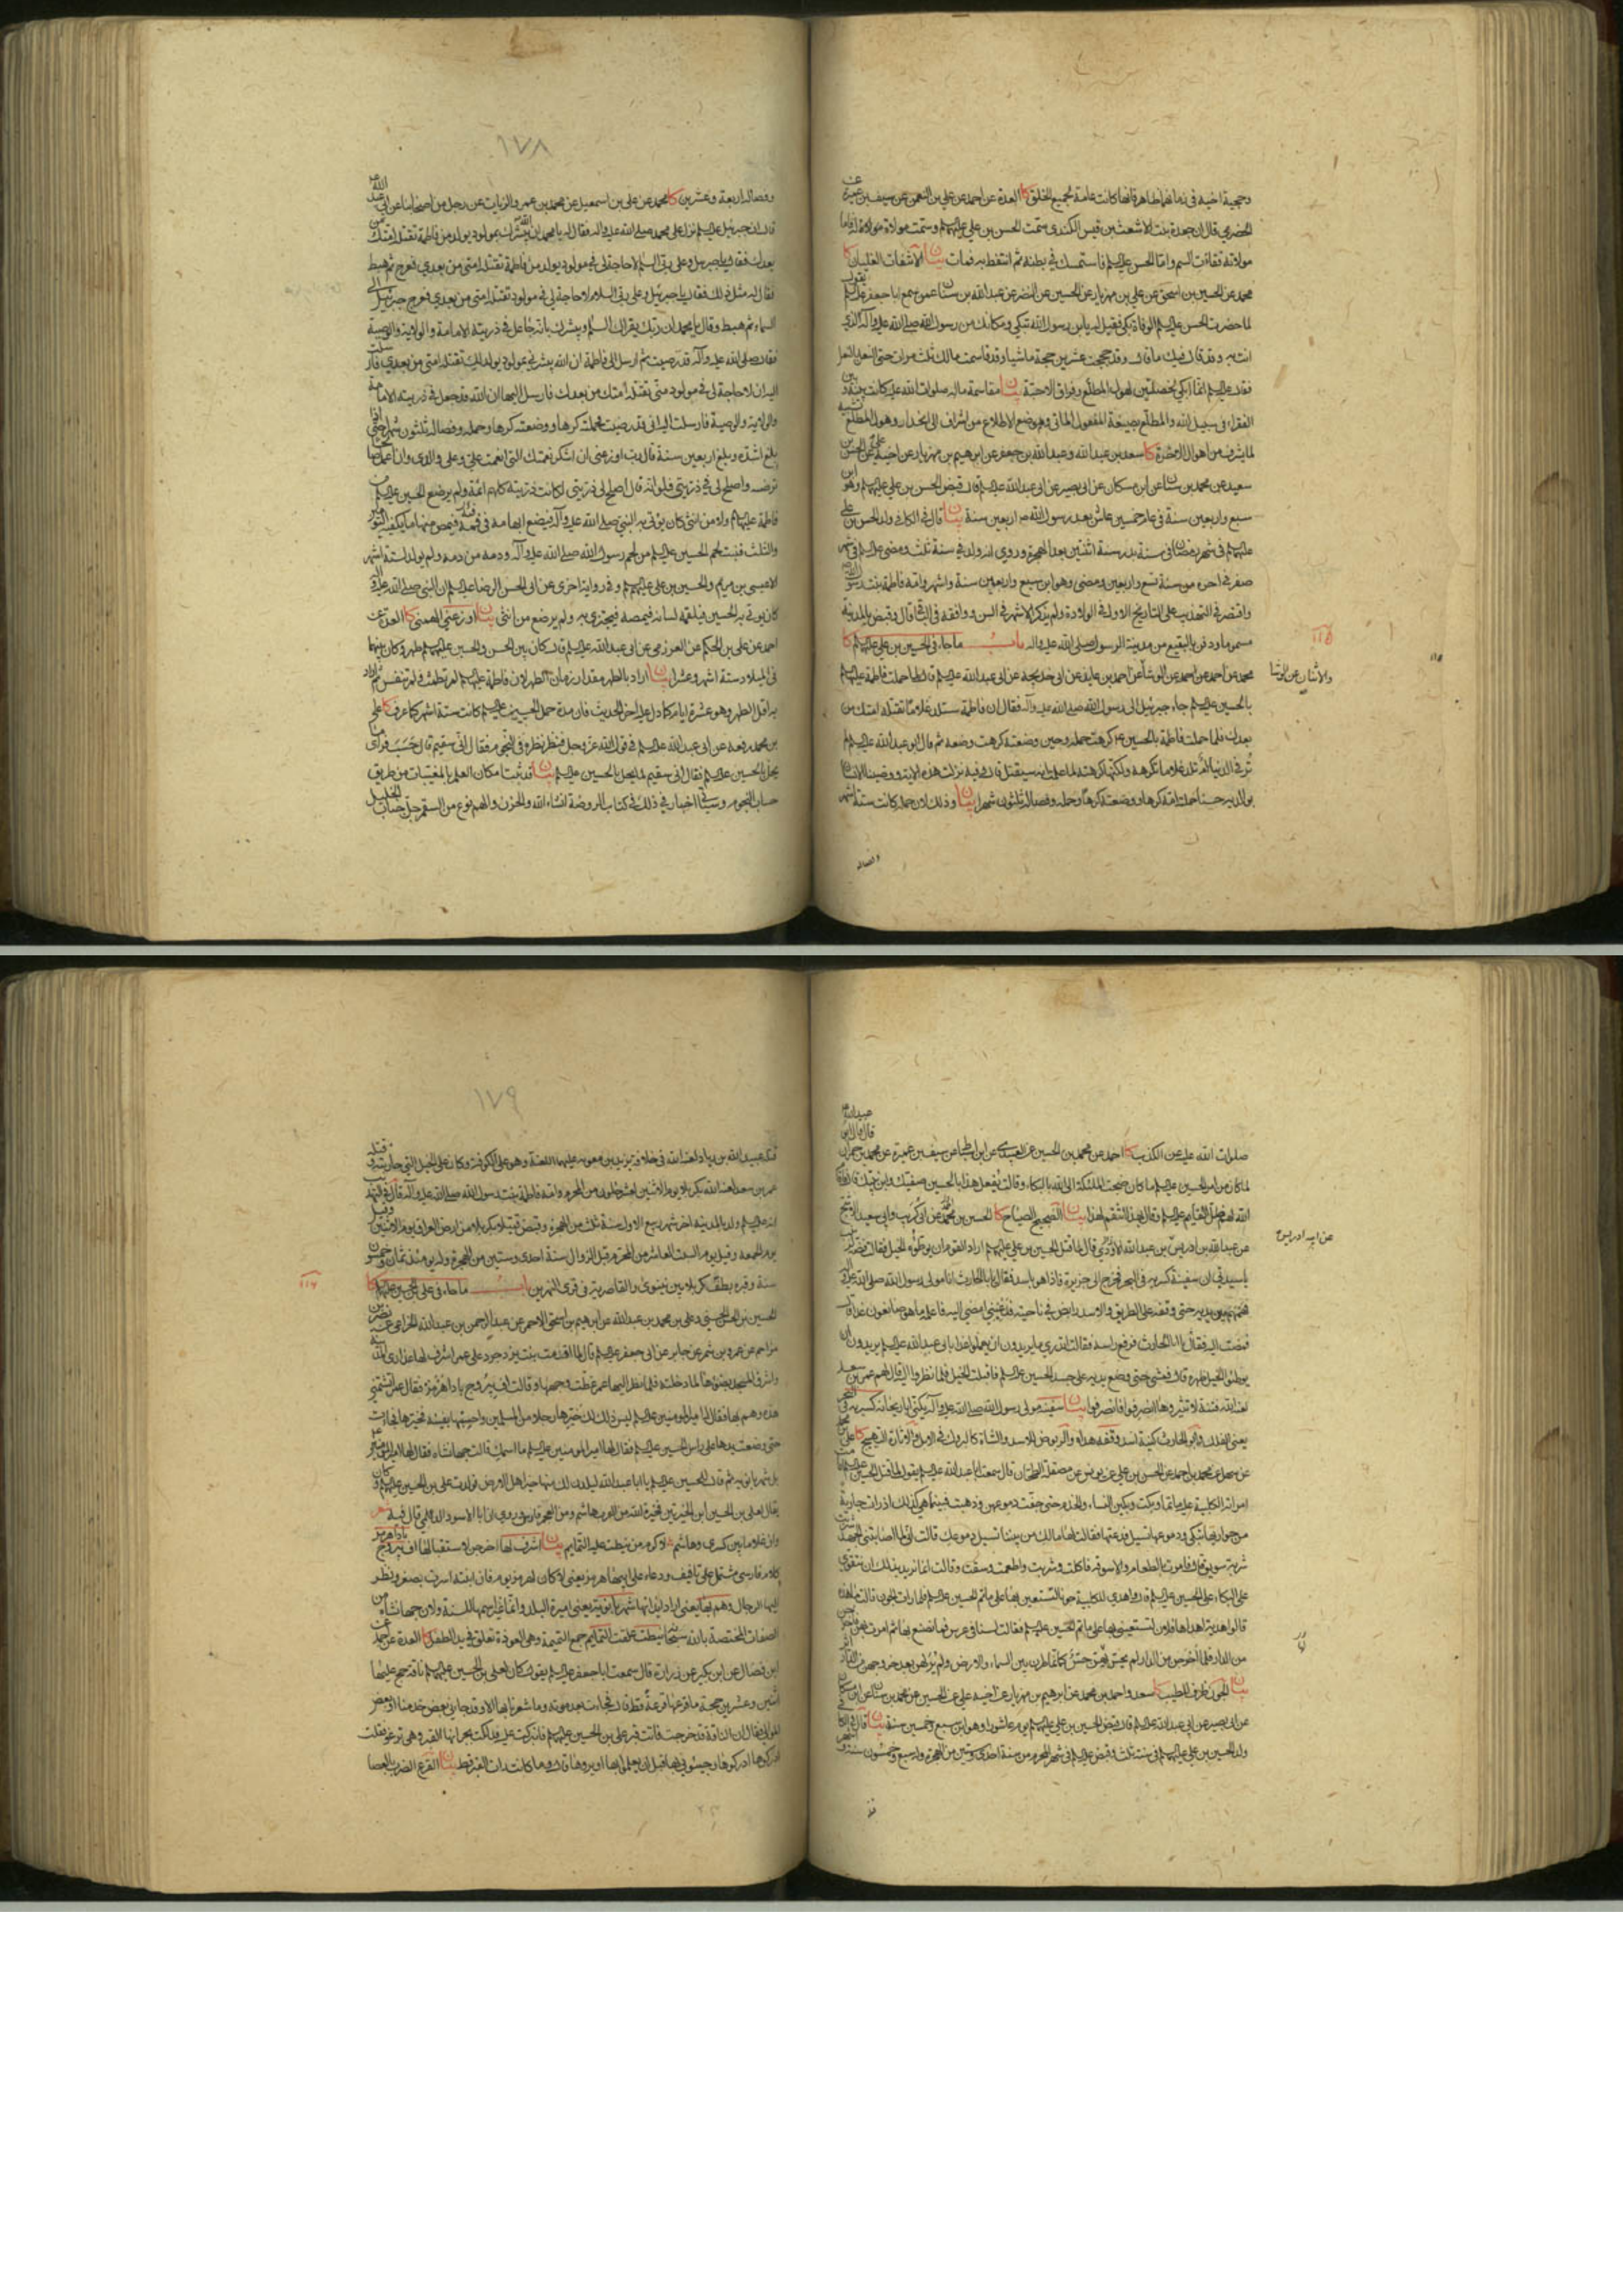 وحجية اخيه في زمانهما ظاهرة فانها كانت عامة لجميع الخلق كا العدة عن احمد عن علي بن النعمن عن سيف بن عميرة عن
الحضرمي قال ان جعدة بنت الاشعث بن قيس الكندي سمت الحسن بن علي عليهما وسمت مولاة له فاما
مولاته فقاءت السم واما الحسن عليه السلم فاستمسك في بطنه ثم انتفط به فمات بيان الانتفاط الغليان كا
محمد عن الحسين بن اسحق عن علي بن مهزيار عن الحسين عن النضر عن عبد الله بن سنان عمن سمع ابا جعفر عليه السلم يقول
لما حضرت الحسن عليه السلم الوفاة بكى فقيل له يابن رسول الله تبكي ومكانك من رسول الله صلى الله عليه وآله الذي
انت به وقد قال فيك ما قال وقد حججت عشرين حجة ماشيا وقد قاسمت مالك ثلث مرات حتى النعل بالنعل
فقال عليه السلم انما ابكي لخصلتين لهول المطلع وفراق الاحبة بيان مقاسمة ماله صلوات الله عليه كانت بينه وبين
الفقراء في سبيل الله والمطلع بصيغة المفعول الماتي وموضع الاطلاع من اشراف الى انحدار وهول المطلع تشبيه
لما يشرف من اهوال الاخرة كا سعد بن عبد الله وعبد الله بن جعفر عن ابرهيم بن مهزيار عن اخيه علي عن الحسن بن
سعيد عن محمد بن سنان عن ابن مسكان عن ابي بصير عن ابي عبد الله عليه السلم قال قبض الحسن بن علي عليهما السلم وهو ابن
سبع واربعين سنة في عام خمسين عاش بعد رسول الله ص اربعين سنة بيان قال في الكافي ولد الحسن بن علي
عليهما السلم في شهر رمضان في سنة بدر سنة اثنتين بعد الهجرة وروي انه ولد في سنة ثلث ومضى عليه السلم في شهر
صفر في اخره من سنة تسع واربعين ومضى وهو ابن سبع واربعين سنة واشهر وامه فاطمة بنت رسول الله
واقتصر في التهذيب على التاريخ الاول في الولادة ولم يذكر الاشهر في السن ووافقه في الباقي قال وقبض بالمدينة
مسموما ودفن بالبقيع من مدينة الرسول صلى الله عليه وآله باب ما جاء في الحسين بن علي عليهما السلم كا
١١٥
محمد عن احمد عن احمد عن الوشاء عن احمد بن عايذ عن ابي خديجة عن ابي عبد الله عليه السلم قال لما حملت فاطمة عليها السلم
والاثنان عن الوشا
بالحسين عليه السلم جاء جبرئيل الى رسول الله صلى الله عليه وآله فقال ان فاطمة ستلد غلاما تقتله امتك من
بعدك فلما حملت فاطمة بالحسين ع كرهت حمله وحين وضعته كرهت وضعه ثم قال ابو عبد الله عليه السلم لم
تر في الدنيا ام تلد غلاما تكرهه ولكنها كرهته لما علمت انه سيقتل قال وفيه نزلت هذه الاية ووصينا الانسان
بوالديه حسنا حملته امه كرها ووضعته كرها وحمله وفصاله ثلثون شهرا بيان وذلك لان حمله كانت ستة اشهر
وفصاله
١٧٨
وفصاله اربعة وعشرين كا محمد عن علي بن اسمعيل عن محمد بن عمرو الزيات عن رجل من اصحابنا عن ابي عبد الله
قال ان جبرئيل عليه السلم نزل على محمد صلى الله عليه وآله فقال له يا محمد ان الله يبشرك بمولود يولد من فاطمة تقتله امتك من
بعدك فقال يا جبرئيل وعلى ربي السلم لا حاجة لي في مولود يولد من فاطمة تقتله امتي من بعدي فعرج ثم هبط
فقال له مثل ذلك فقال يا جبرئيل وعلى ربي السلام لا حاجة لي في مولود تقتله امتي من بعدي فعرج جبرئيل الى
السماء ثم هبط وقال يا محمد ان ربك يقرئك السلم ويبشرك بانه جاعل في ذريته الامامة والولاية والوصية
فقال صلى الله عليه وآله قد رضيت ثم ارسل الى فاطمة ان الله يبشرني بمولود يولد لك تقتله امتي من بعدي فارسلت
اليه ان لا حاجة لي في مولود مني تقتله امتك من بعدك فارسل اليها ان الله قد جعل في ذريته الامامة
والولاية والوصية فارسلت اليه اني قد رضيت فحملته كرها ووضعته كرها وحمله وفصاله ثلثون شهرا حتى اذا
بلغ اشده وبلغ اربعين سنة قال رب اوزعني ان اشكر نعمتك التي انعمت علي وعلى والدي وان اعمل صالحا
ترضه واصلح لي في ذريتي فلولا انه قال اصلح لي في ذريتي لكانت ذريته كلهم ائمة ولم يرضع الحسين عليه السلم من
فاطمة عليها السلم ولا من انثى كان يؤتى به النبي صلى الله عليه وآله فيضع ابهامه في فيه فيمص منها ما يكفيه اليومين
والثلث فنبت لحم الحسين عليه السلم من لحم رسول الله صلى الله عليه وآله ودمه من دمه ولم يولد لستة اشهر
الا عيسى بن مريم والحسين بن علي عليهم السلم وفي رواية اخرى عن ابي الحسن الرضا عليه السلم ان النبي صلى الله عليه وآله
كان يؤتى به الحسين فيلقمه لسانه فيمصه فيجتزي به ولم يرضع من انثى بيان اوزعني الهمني كا العدة عن
احمد عن علي بن الحكم عن العرزمي عن ابي عبد الله عليه السلم قال كان بين الحسن والحسين عليهما السلم طهر وكان بينهما
في الميلاد ستة اشهر وعشرا بيان اراد بالطهر مقدار زمان الطهر لان فاطمة عليها السلم لم تطمث ولم تنفس ثم اراد
به اقل الطهر وهو عشرة ايام كما دل عليه اخر الحديث فان مدة حمل الحسين عليه السلم كانت ستة اشهر كما عرف كا علي
بن محمد رفعه عن ابي عبد الله عليه السلم في قول الله عز وجل فنظر نظرة في النجوم فقال اني سقيم قال حسب فراى ما
يحل بالحسين عليه السلم فقال اني سقيم لما يحل بالحسين عليه السلم بيان قد ثبت امكان العلم بالمغيبات من طريق
حساب النجوم وسياتي اخبار في ذلك في كتاب الروضة انشاء الله والحزن والهم نوع من السقم جل جناب الخليل
صلوات الله عليه عن الكذب كا احمد عن محمد بن الحسين عن العبيدي عن ابن اسباط عن سيف بن عميرة عن محمد بن حمران قال قال ابو عبد الله
لما كان من امر الحسين عليه السلم ما كان ضجت الملئكة الى الله بالبكاء وقالت يفعل هذا بالحسين صفيك وابن نبيك قال فاقام
الله لهم ظل القايم عليه السلم وقال بهذا انتقم لهذا بيان الضجيج الصياح كا الحسين بن محمد عن ابي كريب وابي سعيد الاشج
عن عبد الله بن ادريس بن عبد الله الاودي قال لما قتل الحسين بن علي عليهما السلم اراد القوم ان يوطئوه الخيل فقالت فضة لزينب
عن ابيه ادريس
يا سيدتي ان سفينة كسر به في البحر فخرج الى جزيرة فاذا هو باسد فقال يا ابا الحارث انا مولى رسول الله صلى الله عليه وآله
فهمهم بين يديه حتى وقفه على الطريق والاسد رابض في ناحية فدعيني امضي اليه فاعلمه ما هم صانعون غدا قال
فمضت اليه فقالت يا ابا الحارث فرفع راسه فقالت اتدري ما يريدون ان يعملوا غدا بابي عبد الله عليه السلم يريدون ان
يوطئوا الخيل ظهره قال فمشى حتى وضع يديه على جسد الحسين عليه السلم فاقبلت الخيل فلما نظروا اليه قال لهم عمر بن سعد
لعنه الله فتنة لا تثيروها انصرفوا فانصرفوا بيان سفينة مولى رسول الله صلى الله عليه وآله يكنى ابا ريحانة كسر به في البحر
يعني الفلك وابو الحارث كنية اسد وقفه هداه والربوض للاسد والشاة كالبروك في الابل والاثارة التهييج كا علي بن محمد
عن سهل عن محمد بن احمد عن الحسن بن علي عن يونس عن مصقلة الطحان قال سمعت ابا عبد الله عليه السلم يقول لما قتل الحسين عليه السلم اقامت
امراته الكلبية عليه ماتما وبكت وبكين النساء والخدم حتى جفت دموعهن وذهبت فبينما هي كذلك اذ رات جارية
من جواريها تبكي ودموعها تسيل فدعتها فقالت لها مالك انت من بيننا تسيل دموعك قالت اني لما اصابني الجهد شربت
شربة سويق قال فامرت بالطعام والاسوقة فاكلت وشربت واطعمت وسقت وقالت انما نريد بذلك ان نتقوى
على البكاء على الحسين عليه السلم قال واهدي للكلبية جونا لتستعين بها على ماتم الحسين عليه السلم فلما رات الجون قالت ما هذه
قالوا هدية اهداها فلان لتستعيني بها على ماتم الحسين عليه السلم فقالت لسنا في عرس فما نصنع بها ثم امرت بهن فاخرجن
من الدار فلما اخرجن من الدار لم يحس لهن حس كانما طرن بين السماء والارض ولم ير لهن بعد خروجهن من الدار اثر
بيان الجون ظرف للطيب كا سعد واحمد بن محمد عن ابرهيم بن مهزيار عن اخيه علي عن الحسين عن محمد بن سنان عن ابن مسكان
عن ابي بصير عن ابي عبد الله عليه السلم قال قبض الحسين بن علي عليهما السلم يوم عاشورا وهو ابن سبع وخمسين سنة بيان قال في الكافي
ولد الحسين بن علي عليهما السلم في سنة ثلث وقبض عليه السلم في شهر المحرم من سنة احدى وستين من الهجرة وله سبع وخمسون سنة واشهر
١٧٩
قتله عبيد الله بن زياد لعنه الله في خلافة يزيد بن معوية عليهما اللعنة وهو على الكوفة وكان على الخيل التي حاربته وقتلته
عمر بن سعد لعنه الله بكربلا يوم الاثنين لعشر خلون من المحرم وامه فاطمة بنت رسول الله صلى الله عليه وآله قال في التهذيب
انه عليه السلم ولد بالمدينة اخر شهر ربيع الاول سنة ثلث من الهجرة وقبض قتيلا بكربلا من ارض العراق يوم الاثنين وقيل
يوم الجمعة وقيل يوم السبت العاشر من المحرم قبل الزوال سنة احدى وستين من الهجرة وله يومئذ ثمان وخمسون
سنة وقبره بطف كربلا بين نينوى والغاضرية في قرى النهرين باب ما جاء في علي بن الحسين عليهما كا
١١٦
الحسين بن الحسن الحسني وعلي بن محمد بن عبد الله عن ابرهيم بن اسحق الاحمر عن عبد الرحمن بن عبد الله الخزاعي عن نصر بن
مزاحم عن عمرو بن شمر عن جابر عن ابي جعفر عليه السلم قال لما اقدمت بنت يزدجرد على عمر اشرف لها عذارى المدينة
واشرق المسجد بضوئها لما دخلته فلما نظر اليها عمر غطت وجهها وقالت اف بيروج باداهرمز فقال عمر اتشتمني
هذه وهم بها فقال له امير المؤمنين عليه السلم ليس ذلك لك خيرها رجلا من المسلمين واحسبها بفيئه فخيرها فجاءت
حتى وضعت يدها على راس الحسين عليه السلم فقال لها امير المؤمنين عليه السلم ما اسمك قالت جهانشاه فقال لها امير المؤمنين
بل شهربانويه ثم قال للحسين عليه السلم يا ابا عبد الله ليلدن لك منها خير اهل الارض فولدت علي بن الحسين عليهما السلم وكان
يقال لعلي بن الحسين ابن الخيرتين فخيرة الله من العرب هاشم ومن العجم فارس وروي ان ابا الاسود الدؤلي قال فيه شعر
وان غلاما بين كسرى وهاشم لاكرم من نيطت عليه التمايم بيان اشرف لها اخرجن لاستقبالها اف بيروج باداهرمز
كلام فارسي مشتمل على تافيف ودعاء على ابيها هرمز يعني لا كان لهرمز يوم فان ابنته اسرت بصغر ونظر
اليها الرجال وهم بها يعني اراد ايذائها شهربانويه يعني اميرة البلد وانما غير اسمها للسنة ولان جهانشاه من
الصفات المختصة بالله سبحانه نيطت علقت التمايم جمع التميمة وهي العوذة تعلق في يد الطفل كا العدة عن احمد عن
ابن فضال عن ابن بكير عن زرارة قال سمعت ابا جعفر عليه السلم يقول كان لعلي بن الحسين عليهما السلم ناقة حج عليها
اثنين وعشرين حجة ما قرعها قرعة قط قال فجاءت بعد موته وما شعرنا بها الا وقد جاءني بعض خدمنا او بعض
الموالي فقال ان الناقة قد خرجت فاتت قبر علي بن الحسين عليهما السلم فانبركت عليه فدلكت بجرانها القبر وهي ترغو فقلت
ادركوها ادركوها وجيئوني بها قبل ان يعلموا بها او يروها قال وما كانت رات القبر قط بيان القرع الضرب بالعصا